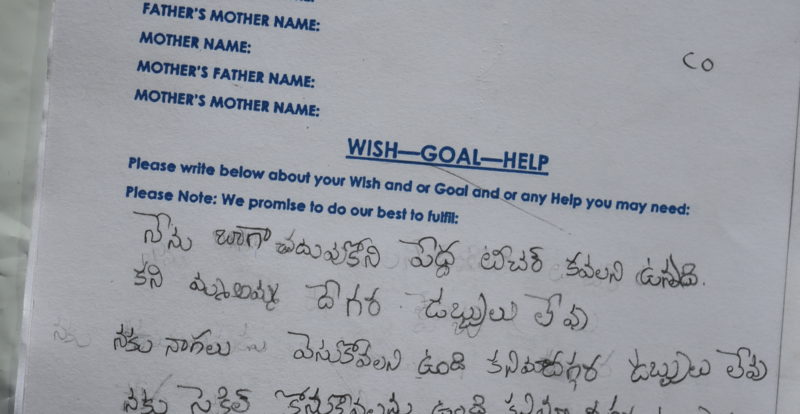 FATHER'S MOTHER NAME:
MOTHER NAME:
MOTHER'S FATHER NAME:
MOTHER'S MOTHER NAME:
CO
WISH—GOAL—HELP
Please write below about your Wish and or Goal and or any Help you may need:
Please Note: We promise to do our best to fulfil:
నేను బాగా చదువుకోని పేద్ద టీచర్ కవలని ఉన్నది.
కని దేగర డబ్బులు లేవు
నకు నాగలు వెసుకోవేలని ఉండి డబ్బులు లేవు
నకు సైకిల్ ఉండి